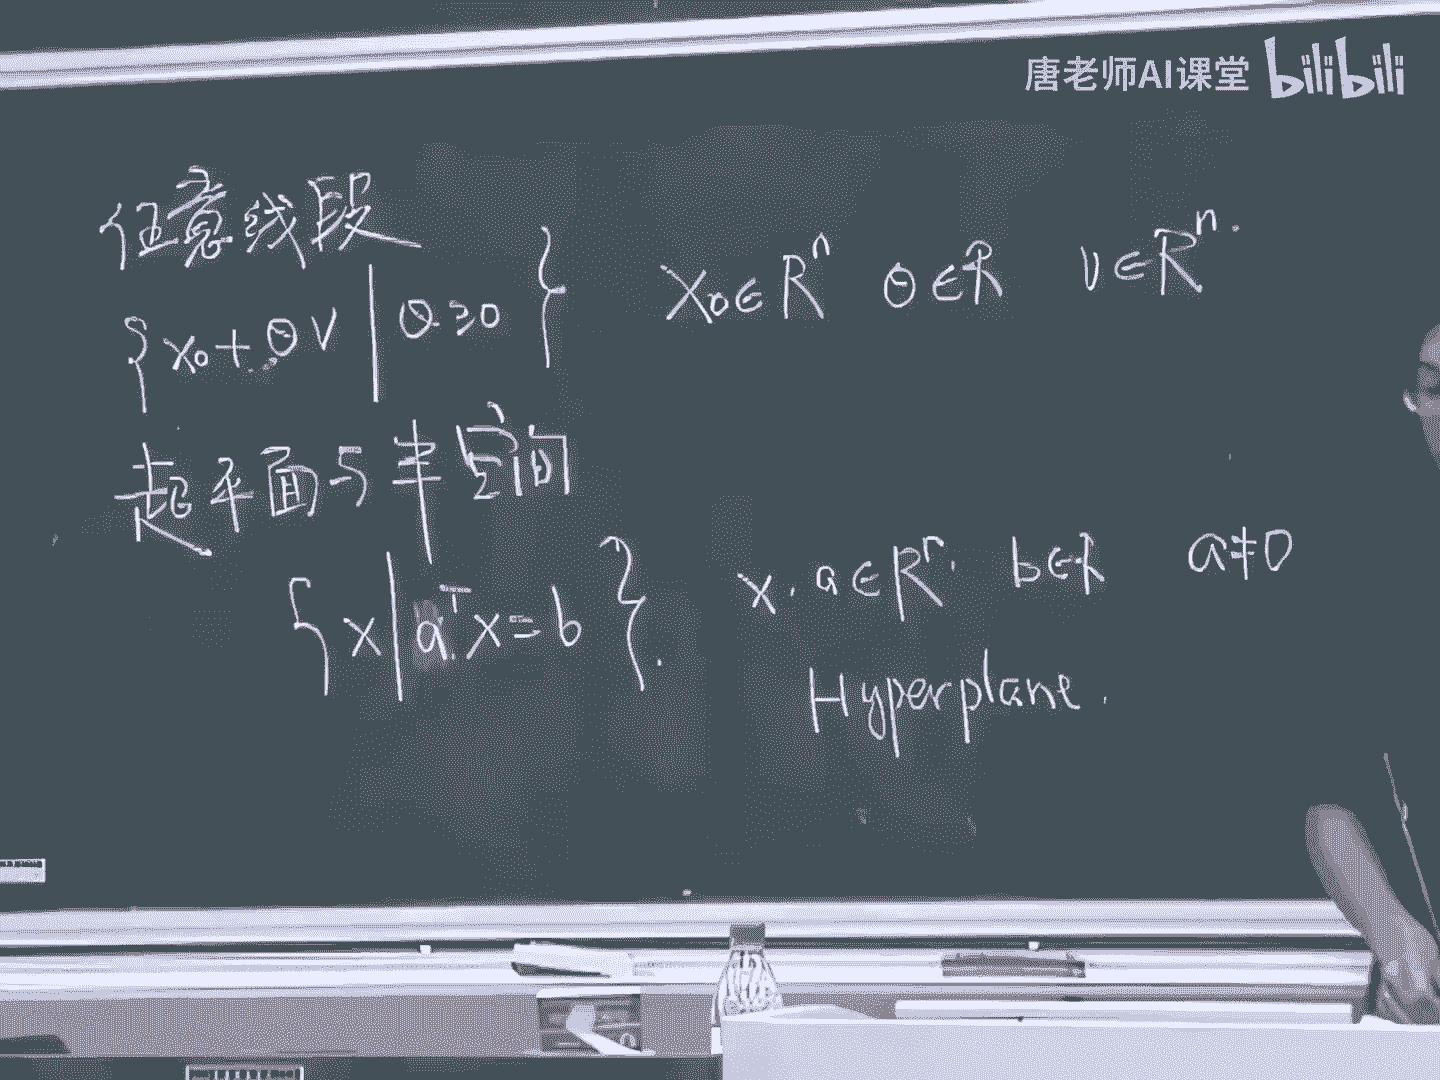 唐老师AI课堂 bilibili
任意线段
{x₀+θv|θ≥0} x₀∈Rⁿ θ∈R v∈Rⁿ.
超平面与半空间
{x|aᵀx=b}. x.a∈Rⁿ. b∈R a≠0
Hyperplane.